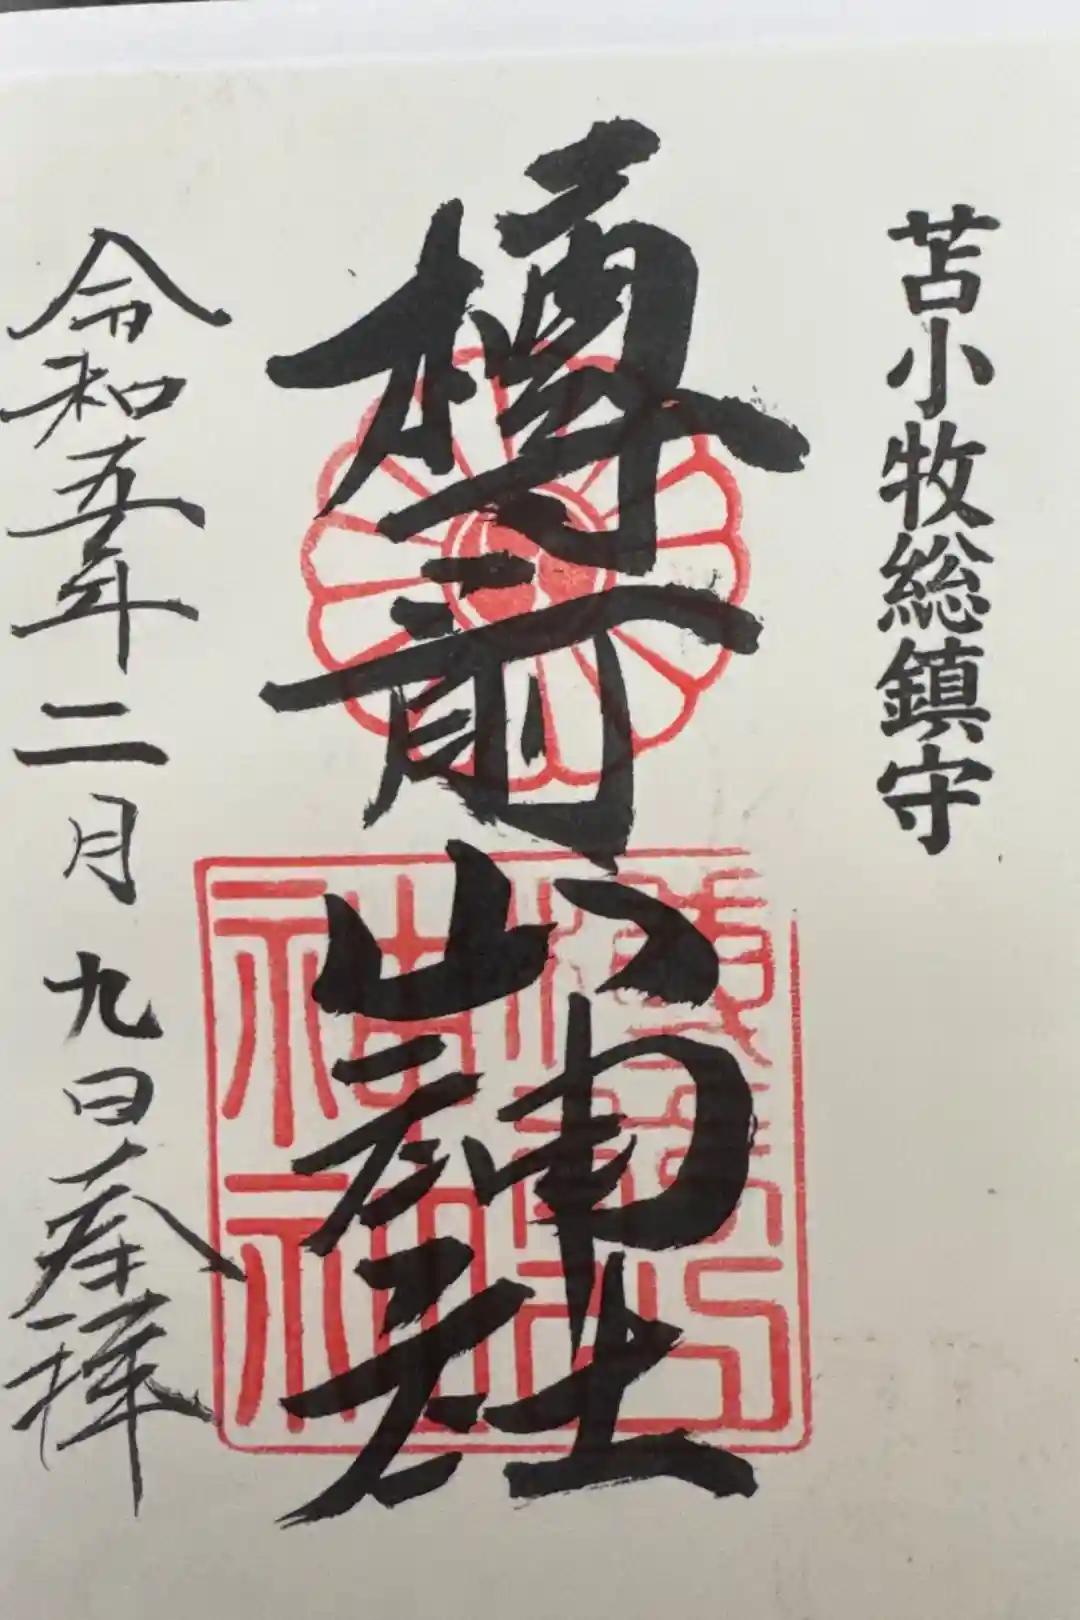 苫小牧総鎮守
樽前山神社
令和五年二月九日奉拝
樽前山神社